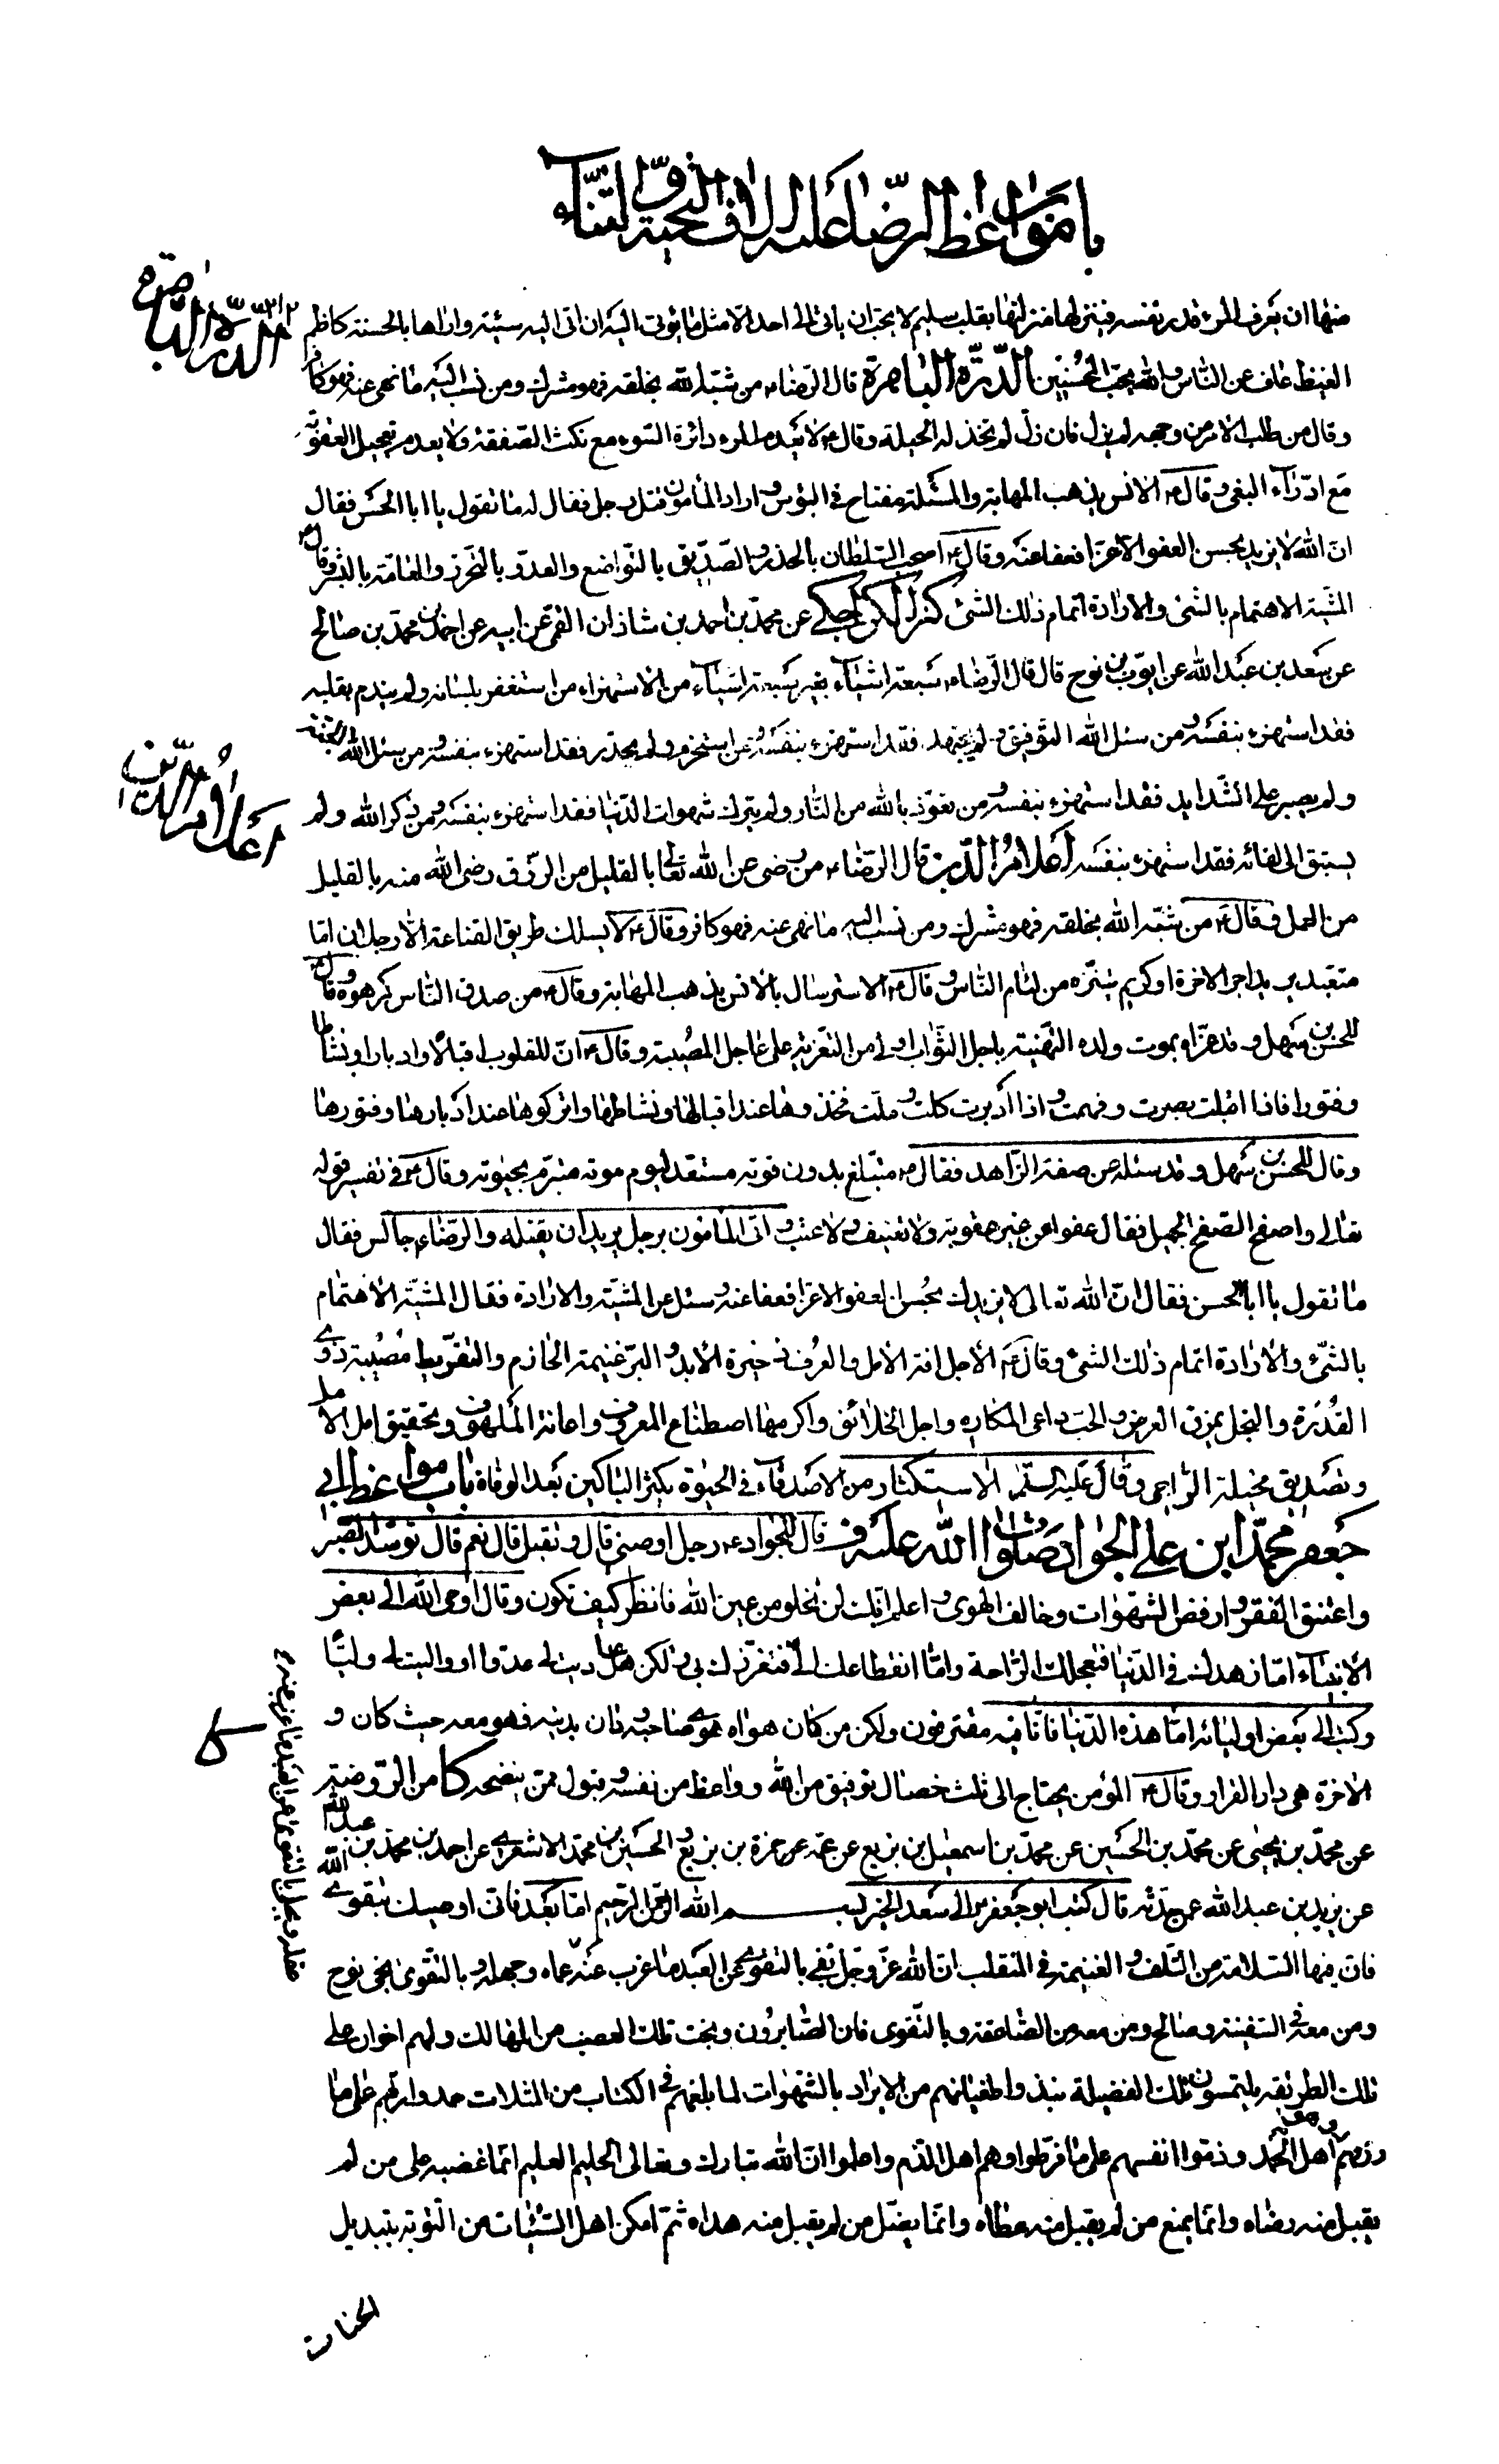 باب مواعظ الرضا عليه الاف التحية و الثناء
الدرة الباصرة
منها ان يعرف المرء قدر نفسه فينزلها منزلتها بقلب سليم لا يحب ان ياتى الى احد الا مثل ما يؤتى اليه ان اتى اليه سيئة واراها بالحسنة كاظم
الغيظ عاف عن الناس و الله يحب المحسنين الدرة الباهرة قال الرضا ع من شبه الله بخلقه فهو مشرك ومن نسب اليه ما نهى عنه فهو كافر
وقال من طلب الامر من وجهه لم يزل فان زل لم تخذله الحيلة وقال ع لا يعدم المرء دائرة السوء مع نكث الصفقة ولا يعدم تعجيل العقوبة
مع ادراء البغى و قال ع الانس يذهب المهابة والمسئلة مفتاح فى البؤس و اراد المأمون قتل رجل فقال له ما تقول يا ابا الحسن فقال
ان الله لا يزيد بحسن العفو الا عزا فعفا عنه وقال ع اصحب السلطان بالحذر و الصديق بالتواضع والعدو بالتحرز والعامة بالبشر وقال ع
المشية الاهتمام بالشئ والارادة اتمام ذلك الشئ كنز الكراجكى عن محمد بن احمد بن شاذان القمى عن ابيه عن احمد بن محمد بن صالح
عن سعد بن عبد الله عن ايوب بن نوح قال قال الرضا ع سبعة اشياء بغير سبعة اشياء من الاستهزاء من استغفر بلسانه ولم يندم بقلبه
فقد استهزء بنفسه و من سئل الله التوفيق و لم يجتهد فقد استهزء بنفسه و من استحزم ولم يحذر فقد استهزء بنفسه و من سئل الله الجنة
ولم يصبر على الشدايد فقد استهزء بنفسه و من تعوذ بالله من النار ولم يترك شهوات الدنيا فقد استهزء بنفسه و من ذكر الله ولم
اعلام الدين
يستبق الى لقائه فقد استهزء بنفسه اعلام الدين قال الرضا ع من رضى عن الله تعالى بالقليل من الرزق رضى الله منه بالقليل
من العمل و قال ع من شبه الله بخلقه فهو مشرك ومن نسب اليه ما نهى عنه فهو كافر وقال ع لا يسلك طريق القناعة الا رجلان اما
متعبد يريد اجر الاخرة او كريم يتنزه من لئام الناس و قال ع الاسترسال بالانس يذهب المهابة وقال ع من صدق الناس كرهوه و قال ع
للحسن بن سهل وقد عزاه بموت ولده التهنية باجل الثواب اولى من التعزية على عاجل المصيبة وقال ع ان للقلوب اقبالا وادبارا ونشاطا
وفتورا فاذا اقبلت بصرت وفهمت و اذا ادبرت كلت و ملت فخذوها عند اقبالها ونشاطها واتركوها عند ادبارها وفتورها
وقال للحسن بن سهل وقد سئله عن صفة الزاهد فقال ع متبلغ بدون قوته مستعد ليوم موته متبرم بحيوته وقال ع فى تفسير قوله
تعالى واصفح الصفح الجميل فقال عفوا من غير عقوبة ولا تعنيف ولا عتب و اتى المامون برجل يريد ان يقتله والرضا ع جالس فقال
ما تقول يا ابا الحسن فقال ان الله تعالى لا يزيدك بحسن العفو الا عزا فعفا عنه و سئل عن المشية والارادة فقال المشية الاهتمام
بالشئ والارادة اتمام ذلك الشئ وقال ع الاجل افة الامل والعرف ذخيرة الابد و البر غنيمة الحازم والتفريط مصيبة ذوى
القدرة والبخل يمزق العرض و الحب داعى المكاره واجل الخلائق واكرمها اصطناع المعروف و اغاثة الملهوف وتحقيق امل الامل
وتصديق مخيلة الراجى وقال عليه السلم الاستكثار من الاصدقاء فى الحيوة يكثر الباكين بعد الوفاة باب مواعظ ابى
جعفر محمد ابن على الجواد صلوات الله عليه ف قال للجواد ع رجل اوصنى قال وتقبل قال نعم قال توسد الصبر
واعتنق الفقر و ارفض الشهوات وخالف الهوى و اعلم انك لن تخلو من عين الله فانظر كيف تكون وقال اوحى الله الى بعض
الانبياء اما زهدك فى الدنيا فتعجلك الراحة واما انقطاعك الى فتعززك بى ولكن هل عاديت لى عدوا او واليت لى وليا
وكتب الى بعض اوليائه اما هذه الدنيا فانا فيه مغترفون ولكن من كان هواه هوى صاحبه و دان بدينه فهو معه حيث كان و
الاخرة هى دار القرار وقال ع المؤمن يحتاج الى ثلث خصال توفيق من الله و واعظ من نفسه و قبول ممن ينصحه كا من الروضة
عن محمد بن يحيى عن محمد بن الحسين عن محمد بن اسمعيل بن بزيع عن عمه حمزة بن بزيع و الحسين بن محمد الاشعرى عن احمد بن محمد بن عبد الله
عن يزيد بن عبد الله عمن حدثه قال كتب ابو جعفر ع الى سعد الخير بسم الله الرحمن الرحيم اما بعد فانى اوصيك بتقوى الله
فان فيها السلامة من التلف و الغنيمة فى المنقلب ان الله عز وجل يقى بالتقوى عن العبد ما عزب عنه عماه وجهله و بالتقوى نجى نوح
ومن معه فى السفينة وصالح ومن معه من الصاعقة وبالتقوى فاز الصابرون ونجت تلك العصب من المهالك ولهم اخوان على
تلك الطريقة يلتمسون تلك الفضيلة نبذوا طغيانهم من الايراد بالشهوات لما بلغهم فى الكتاب من المثلات حمدوا ربهم على ما
رزقهم وهو اهل الحمد وذموا انفسهم على ما فرطوا وهم اهل الذم واعلموا ان الله تبارك وتعالى الحليم العليم انما غضبه على من لم
يقبل منه رضاه وانما يمنع من لم يقبل منه عطاه وانما يضل من لم يقبل منه هداه ثم امكن اهل السيئات من التوبة بتبديل
الحسنات